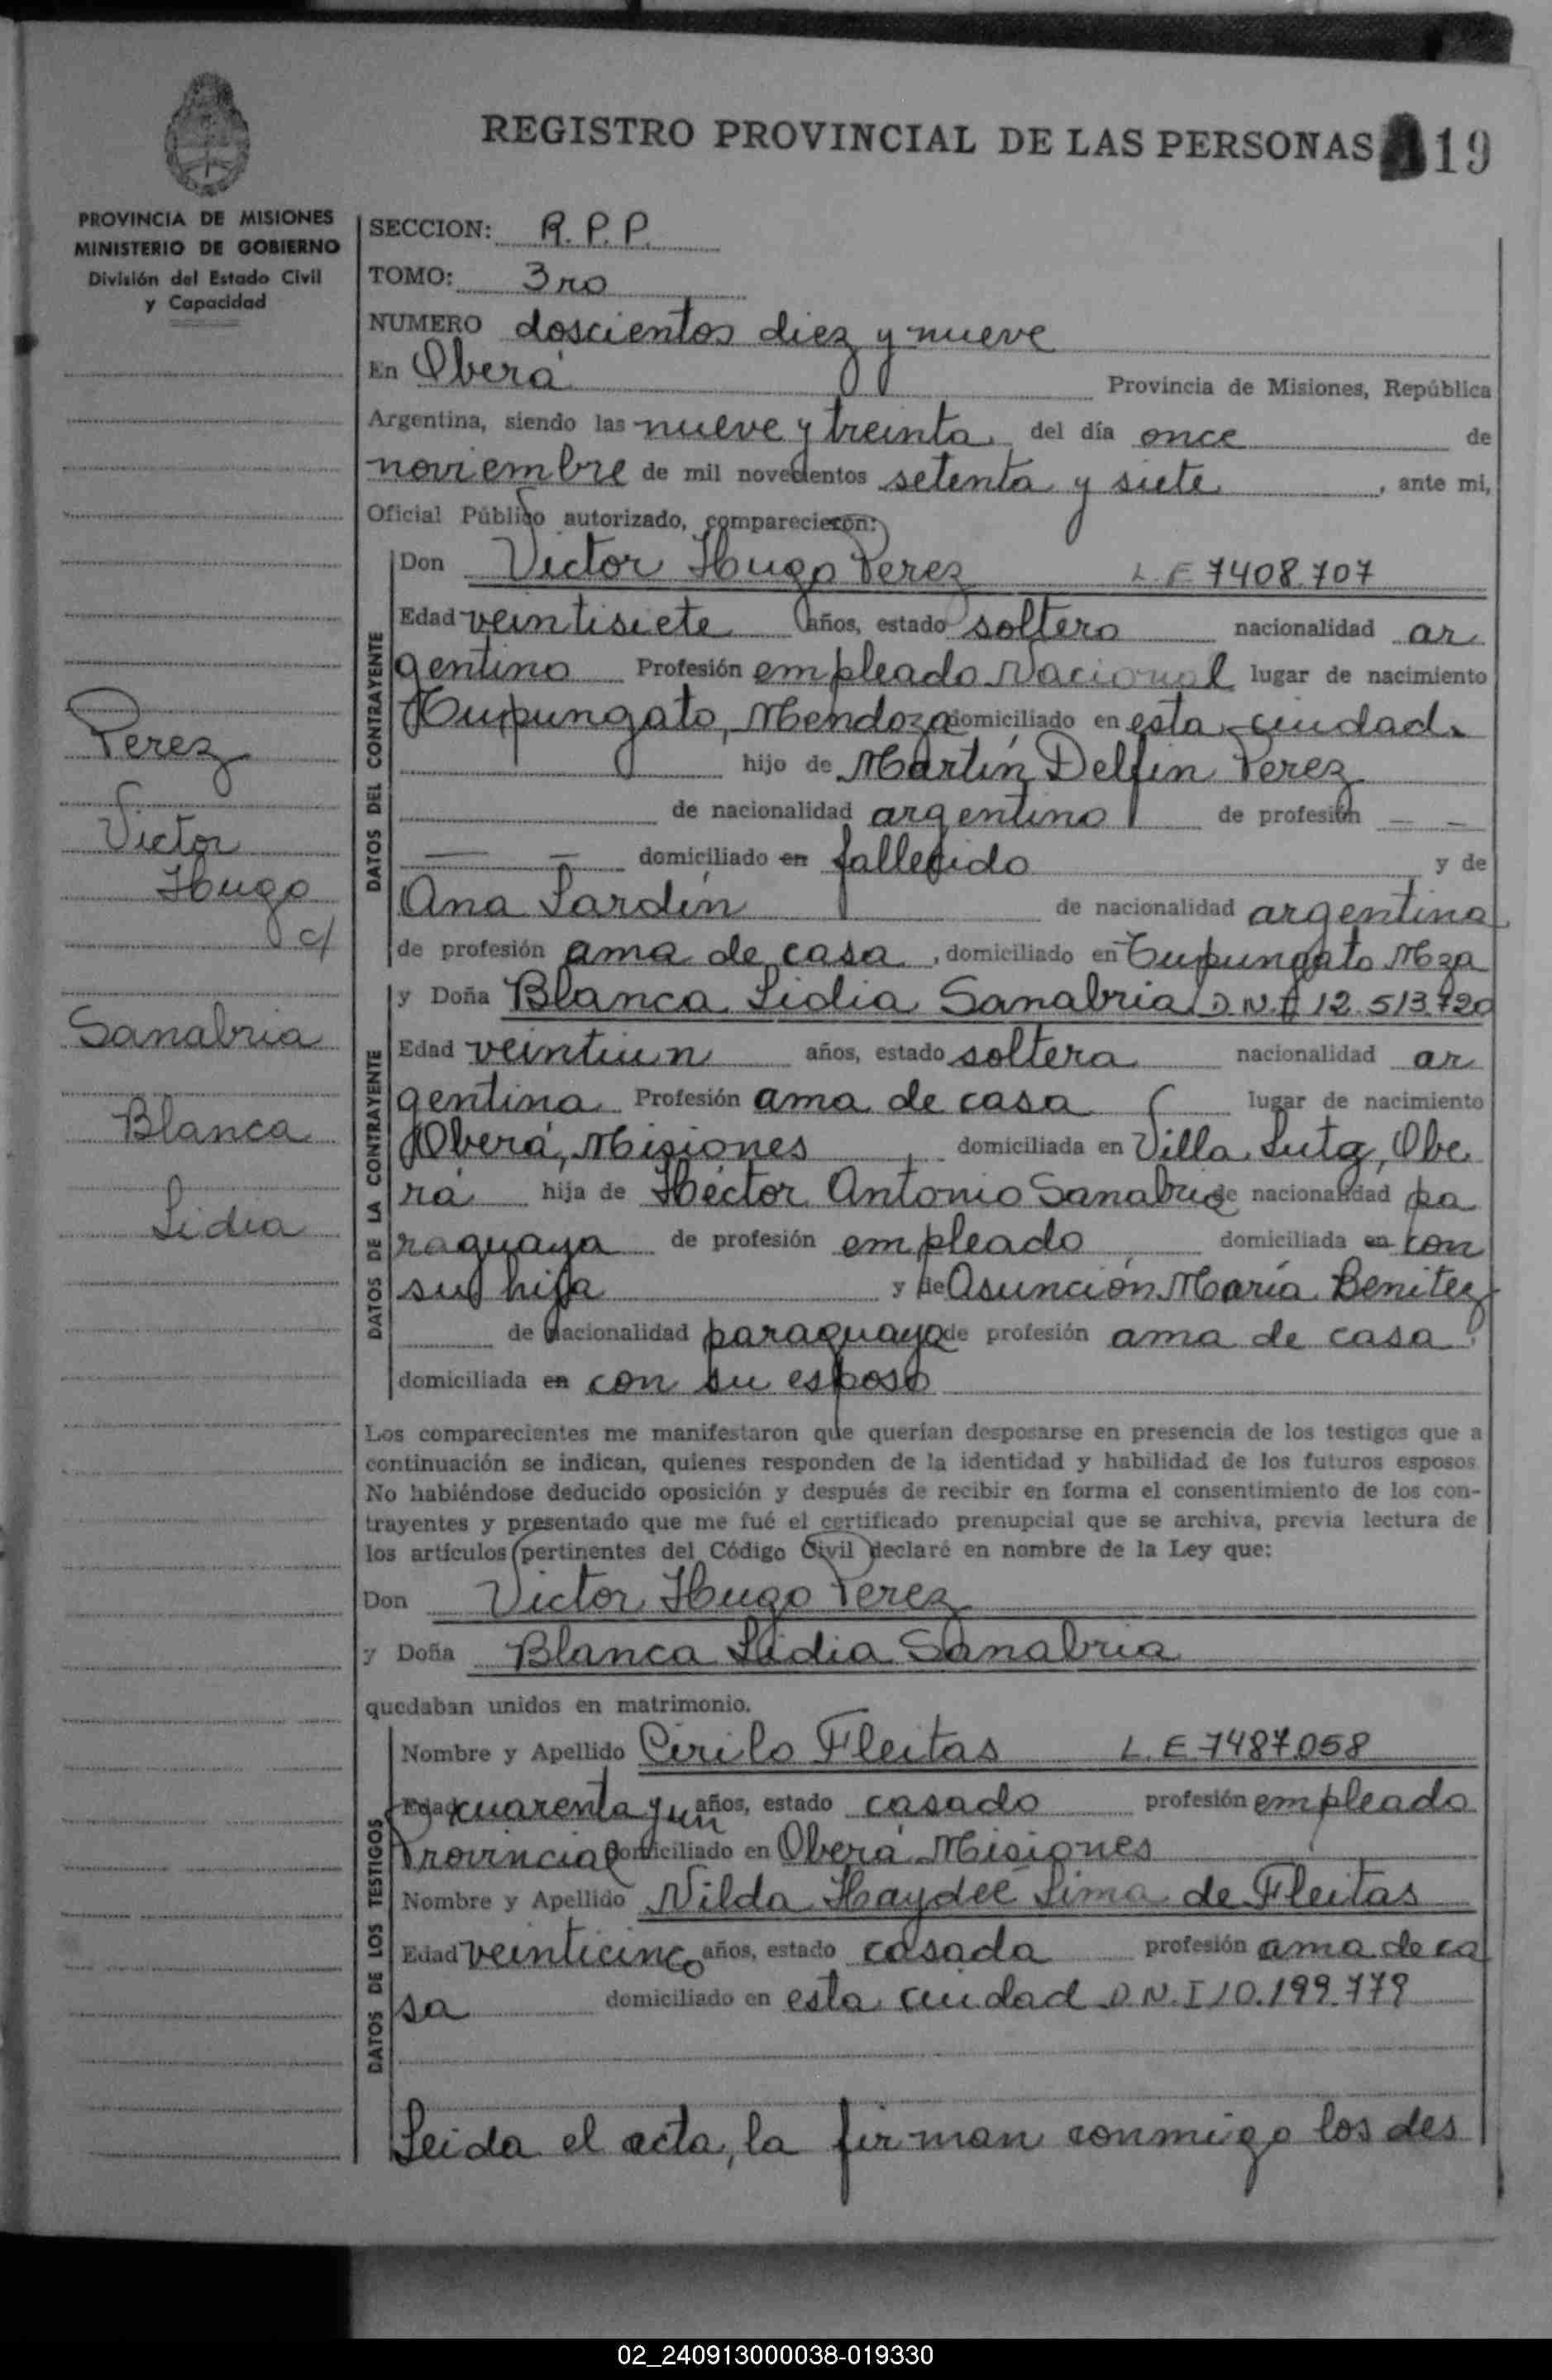 REGISTRO PROVINCIAL DE LAS PERSONAS 19
PROVINCIA DE MISIONES
MINISTERIO DE GOBIERNO
División del Estado Civil
y Capacidad
SECCION: R.P.P.
TOMO: 3ro
NUMERO doscientos diez y nueve
En Oberá Provincia de Misiones, República
Argentina, siendo las nueve y treinta del día once de
noviembre de mil novecientos setenta y siete, ante mi,
Oficial Público autorizado, comparecieron:
DATOS DEL CONTRAYENTE
Don Victor Hugo Perez L.E 7408.707
Edad veintisiete años, estado soltero nacionalidad ar
gentino Profesión empleado Nacional lugar de nacimiento
Tupungato, Mendoza domiciliado en esta ciudad.
hijo de Martín Delfin Perez
de nacionalidad argentino de profesión — —
— — domiciliado en fallecido y de
Ana Sardín de nacionalidad argentina
de profesión ama de casa, domiciliado en Tupungato Mza
DATOS DE LA CONTRAYENTE
y Doña Blanca Lidia Sanabria D.N.I 12.513.720
Edad veintiun años, estado soltera nacionalidad ar
gentina Profesión ama de casa lugar de nacimiento
Oberá, Misiones domiciliada en Villa Lutz, Obe
rá hija de Héctor Antonio Sanabria de nacionalidad pa
raguaya de profesión empleado domiciliada en con
su hija y de Asunción María Benitez
de nacionalidad paraguaya de profesión ama de casa,
domiciliada en con su esposo
Los comparecientes me manifestaron que querían desposarse en presencia de los testigos que a
continuación se indican, quienes responden de la identidad y habilidad de los futuros esposos
No habiéndose deducido oposición y después de recibir en forma el consentimiento de los con-
trayentes y presentado que me fué el certificado prenupcial que se archiva, previa lectura de
los artículos pertinentes del Código Civil declaré en nombre de la Ley que:
Don Victor Hugo Perez
y Doña Blanca Lidia Sanabria
quedaban unidos en matrimonio.
DATOS DE LOS TESTIGOS
Nombre y Apellido Cirilo Fleitas L.E 7487058
Edad cuarenta y un años, estado casado profesión empleado
Provincial domiciliado en Oberá Misiones
Nombre y Apellido Nilda Haydeé Lima de Fleitas
Edad veinticinco años, estado casada profesión ama de ca
sa domiciliado en esta ciudad D.N.I 10.199.779
Leida el acta, la firman conmigo los des
Perez
Victor
Hugo
c/
Sanabria
Blanca
Lidia
02_240913000038-019330